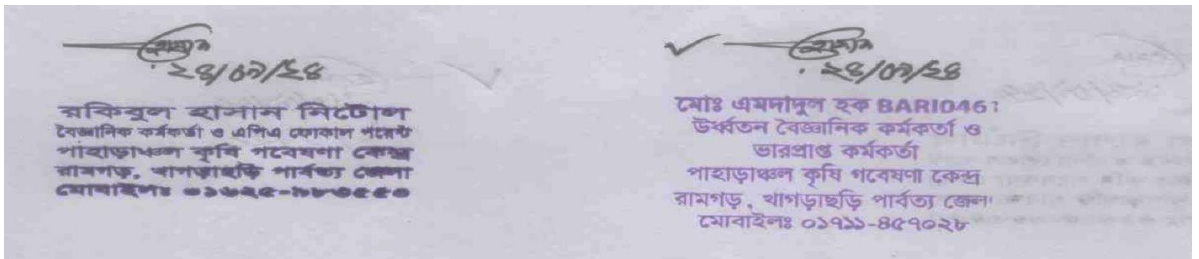 ২৪/০৯/২৪
রকিবুল হাসান নিটোল
বৈজ্ঞানিক কর্মকর্তা ও এপিএ ফোকাল পয়েন্ট
পাহাড়াঞ্চল কৃষি গবেষণা কেন্দ্র
রামগড়, খাগড়াছড়ি পার্বত্য জেলা
মোবাইলঃ
২৪/০৯/২৪
মোঃ এমদাদুল হক BARI046
উর্ধ্বতন বৈজ্ঞানিক কর্মকর্তা ও
ভারপ্রাপ্ত কর্মকর্তা
পাহাড়াঞ্চল কৃষি গবেষণা কেন্দ্র
রামগড়, খাগড়াছড়ি পার্বত্য জেলা
মোবাইলঃ ০১৭১১-৪৫৭০২৮